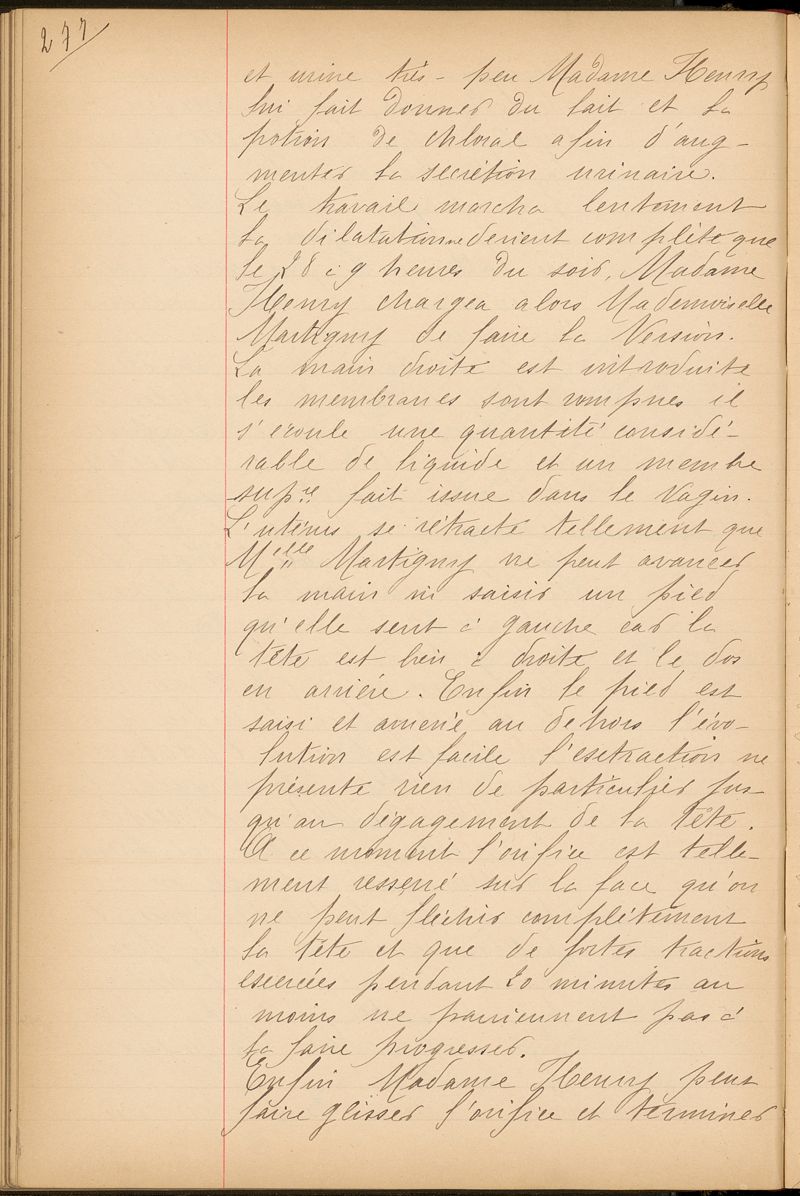 277
et urine très-peu Madame Henry
lui fait donner du lait et la
potion de chloral afin d'aug-
menter la secrétion urinaire.
Le travail marcha lentement
la dilatation ne devient complète que
le 28 à 9 heures du soir, Madame
Henry chargea alors Mademoiselle
Martigny de faire la Version.
La main droite est introduite
les membranes sont rompues il
s'écoule une quantité considé-
rable de liquide et un membre
supre fait issue dans le Vagin.
L'utérus se rétracte tellement que
Melle Martigny ne peut avancer
la main ni saisir un pied
qu'elle sent à gauche car la
tête est bien à droite et le dos
en arrière. Enfin le pied est
saisi et amené au dehors l'évo-
lution est facile l'extraction ne
présente rien de particulier jus-
qu'au dégagement de la tête.
A ce moment l'orifice est telle-
ment resserré sur la face qu'on
ne peut fléchir complétement
la tête et que de fortes tractions
exercées pendant 20 minutes au
moins ne parviennent pas à
la faire progresser.
Enfin Madame Henry peut
faire glisser l'orifice et terminer